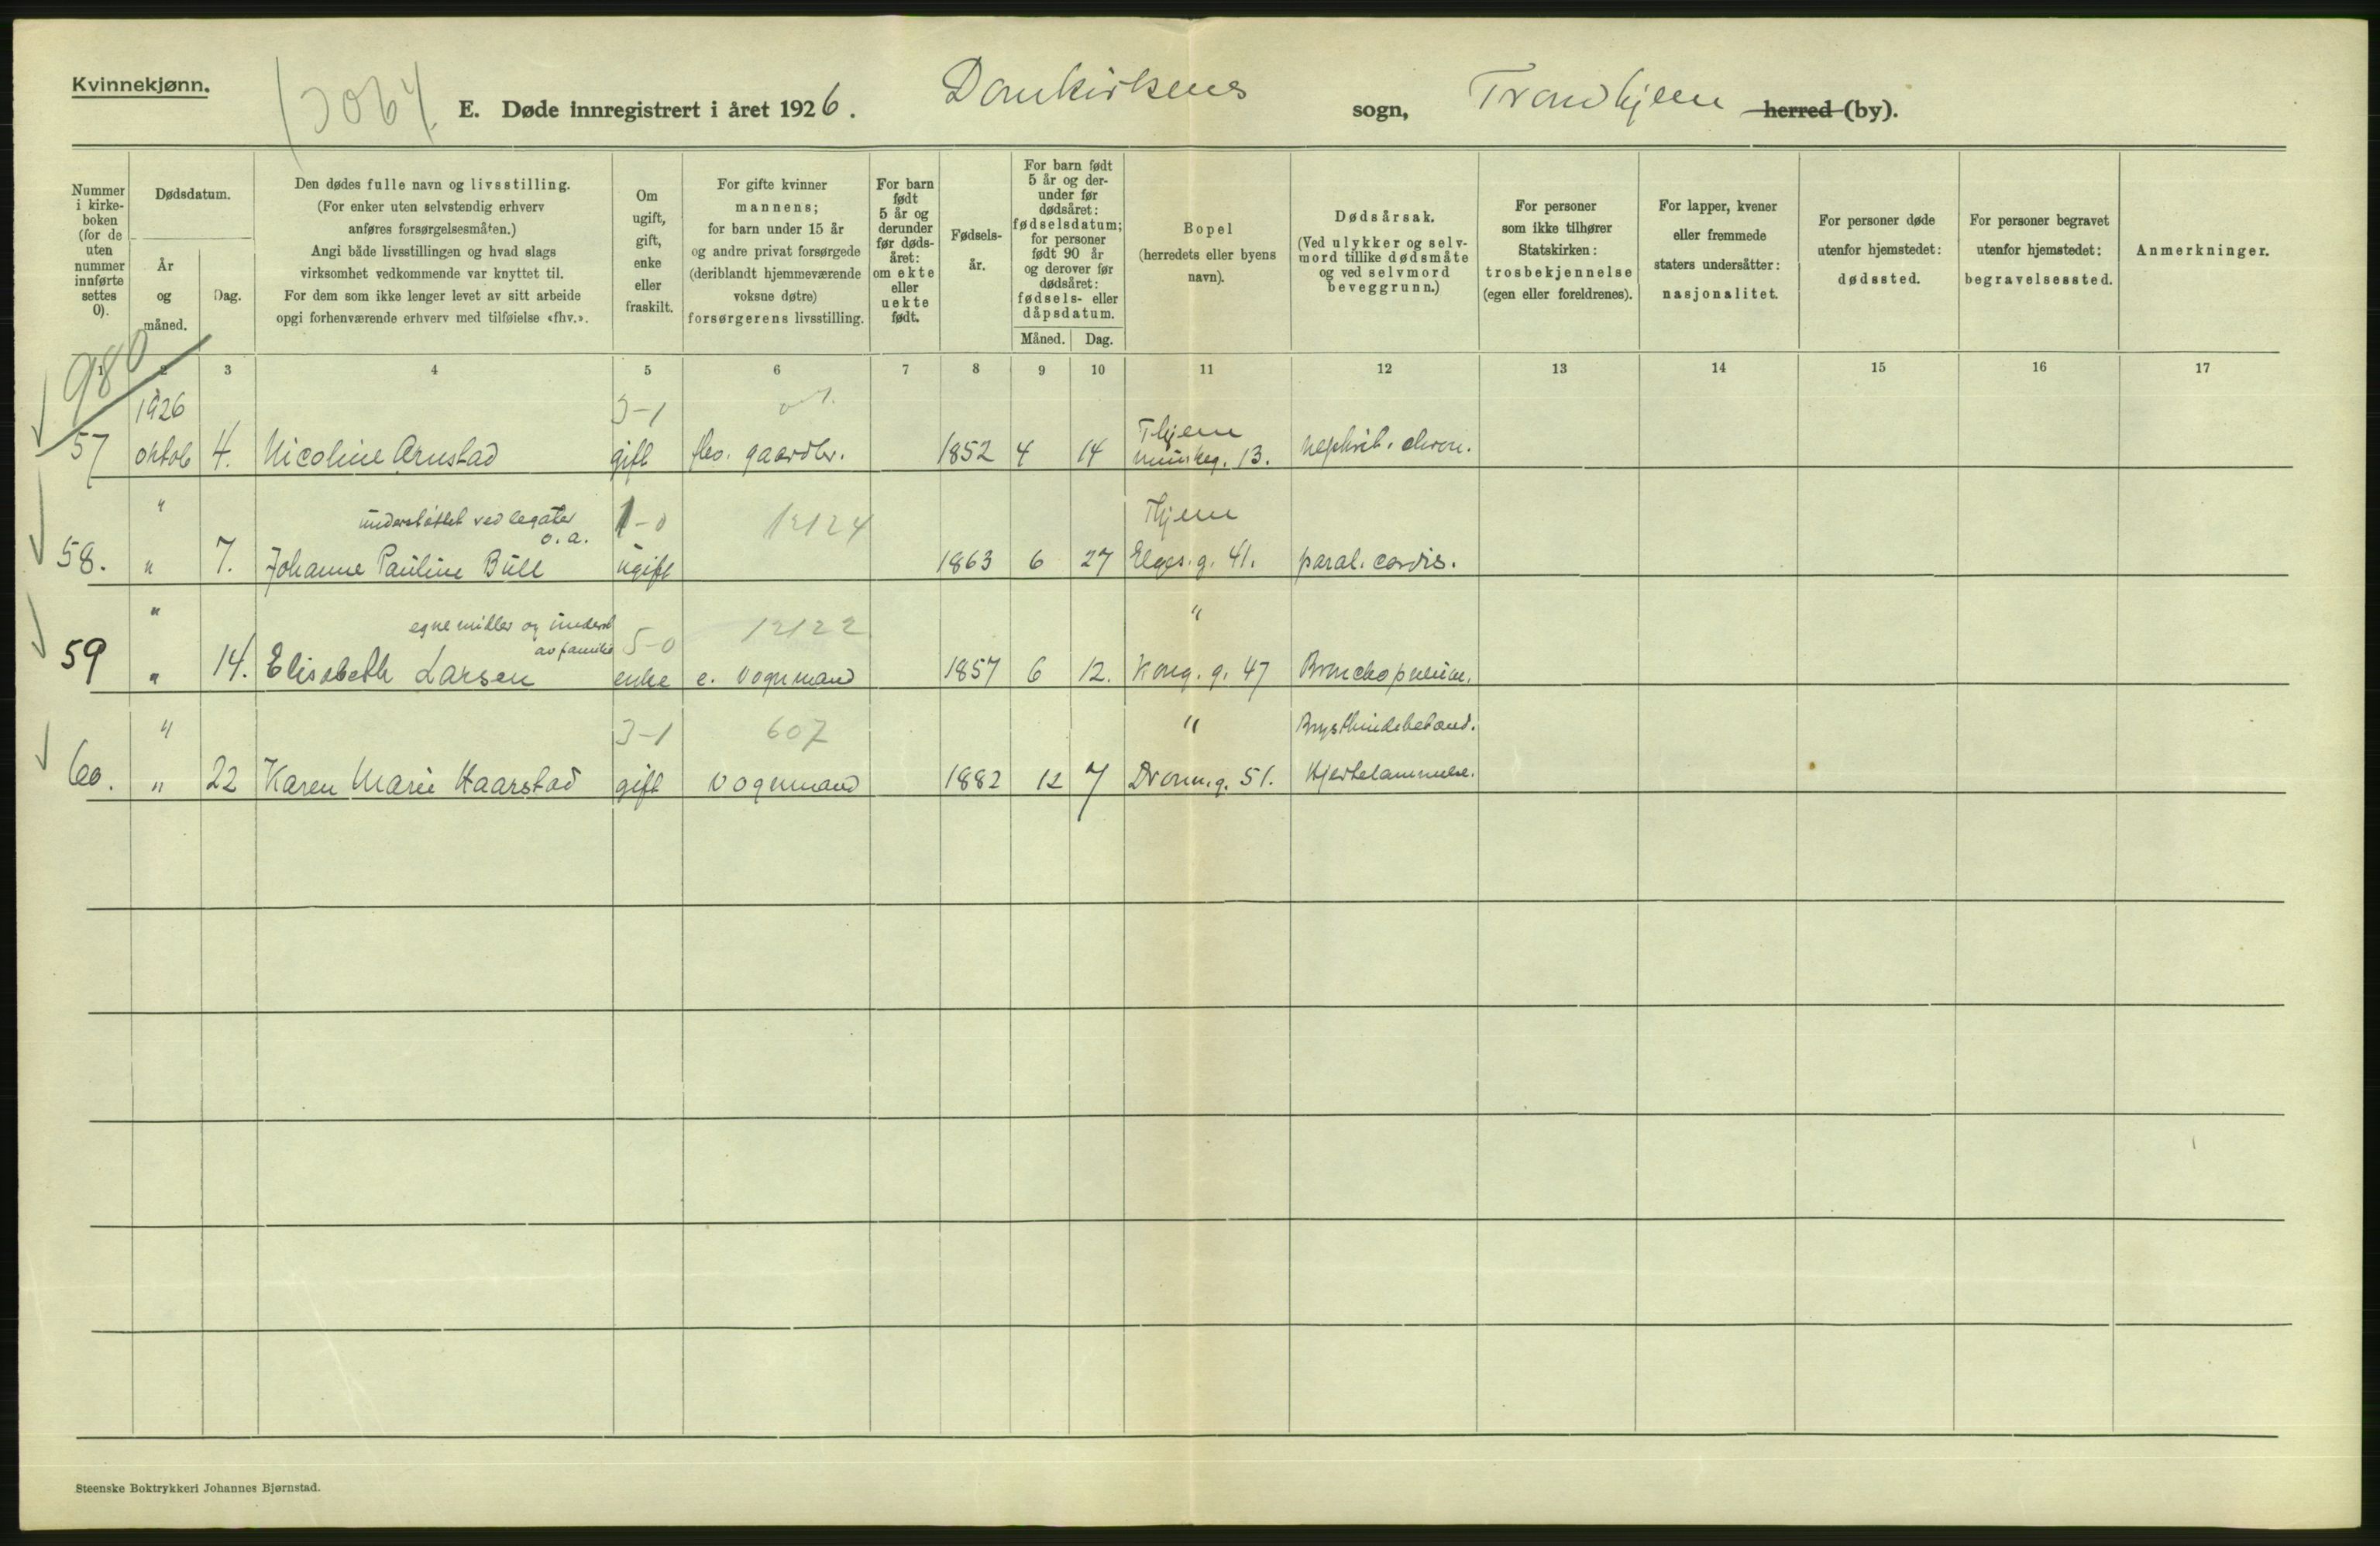 Kvinnekjønn.
E. Døde innregistrert i året 1926. Domkirkens sogn, Trondhjem herred (by).
Nummer i kirke-boken (for de uten nummer innførte settes 0).
Dødsdatum.
År og måned.
Dag.
Den dødes fulle navn og livsstilling.
(For enker uten selvstendig erhverv
anføres forsørgelsesmåten.)
Angi både livsstillingen og hvad slags
virksomhet vedkommende var knyttet til.
For dem som ikke lenger levet av sitt arbeide
opgi forhenværende erhverv med tilføielse «fhv.».
Om
ugift,
gift,
enke
eller
fraskilt.
For gifte kvinner
mannens;
for barn under 15 år
og andre privat forsørgede
(deriblandt hjemmeværende
voksne døtre)
forsørgerens livsstilling.
For barn
født
5 år og
derunder
før døds-
året:
om ekte
eller
uekte
født.
Fødsels-
år.
For barn født
5 år og der-
under før
dødsåret:
fødselsdatum;
for personer
født 90 år
og derover før
dødsåret:
fødsels- eller
dåpsdatum.
Måned. Dag.
Bopel
(herredets eller byens
navn).
Dødsårsak.
(Ved ulykker og selv-
mord tillike dødsmåte
og ved selvmord
beveggrunn.)
For personer
som ikke tilhører
Statskirken:
trosbekjennelse
(egen eller foreldrenes).
For lapper, kvener
eller fremmede
staters undersåtter:
nasjonalitet.
For personer døde
utenfor hjemstedet:
dødssted.
For personer begravet
utenfor hjemstedet:
begravelsessted.
Anmerkninger.
980
1 2 3 4 5 6 7 8 9 10 11 12 13 14 15 16 17
1926 3-1 Thjem
57 oktob 4. Nicoline Arnstad gift fhv. gaardbr. 1852 4 14 Munkeg. 13. nephrit. chron.
" understøttet ved legater o.a. 1-0 12124 Thjem
58. " 7. Johanne Pauline Bull ugift 1863 6 27 Elges.g. 41. paral. cordis.
" egne midler og underst av familie 5-0 12122 "
59 " 14. Elisabeth Larsen enke e. vognmand 1857 6 12. Kong.g. 47 Bronchopneum.
" 3-1 607 " Brysthindebetænd.
60. " 22 Karen Marie Haarstad gift vognmand 1882 12 7 Dronn.g. 51. Hjertelammelse.
Steenske Boktrykkeri Johannes Bjørnstad.